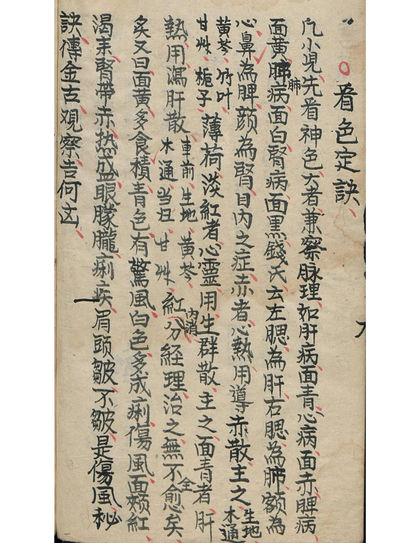 看色定訣
凡小兒先看神色大者兼察脉理如肝病面青心病面赤脾病
面黄肺病面白腎病面黑錢氏云左腮為肝右腮為肺額為
心鼻為脾頦為腎目内之症赤者心熱用導赤散主之生地木通
黄芩竹叶甘艸梔子薄荷淡紅者心靈用生群散主之面青者肝
熱用瀉肝散車前生地黄芩木通当归甘艸紅内消分經理治之無不全愈矣
矣又曰面黄多食積青色有驚風白色多成痢傷風面頰紅
渴來腎帶赤热盛眼朦朧痢疾眉頭皺不皺是傷風秘
訣傳金古观察吉何凶